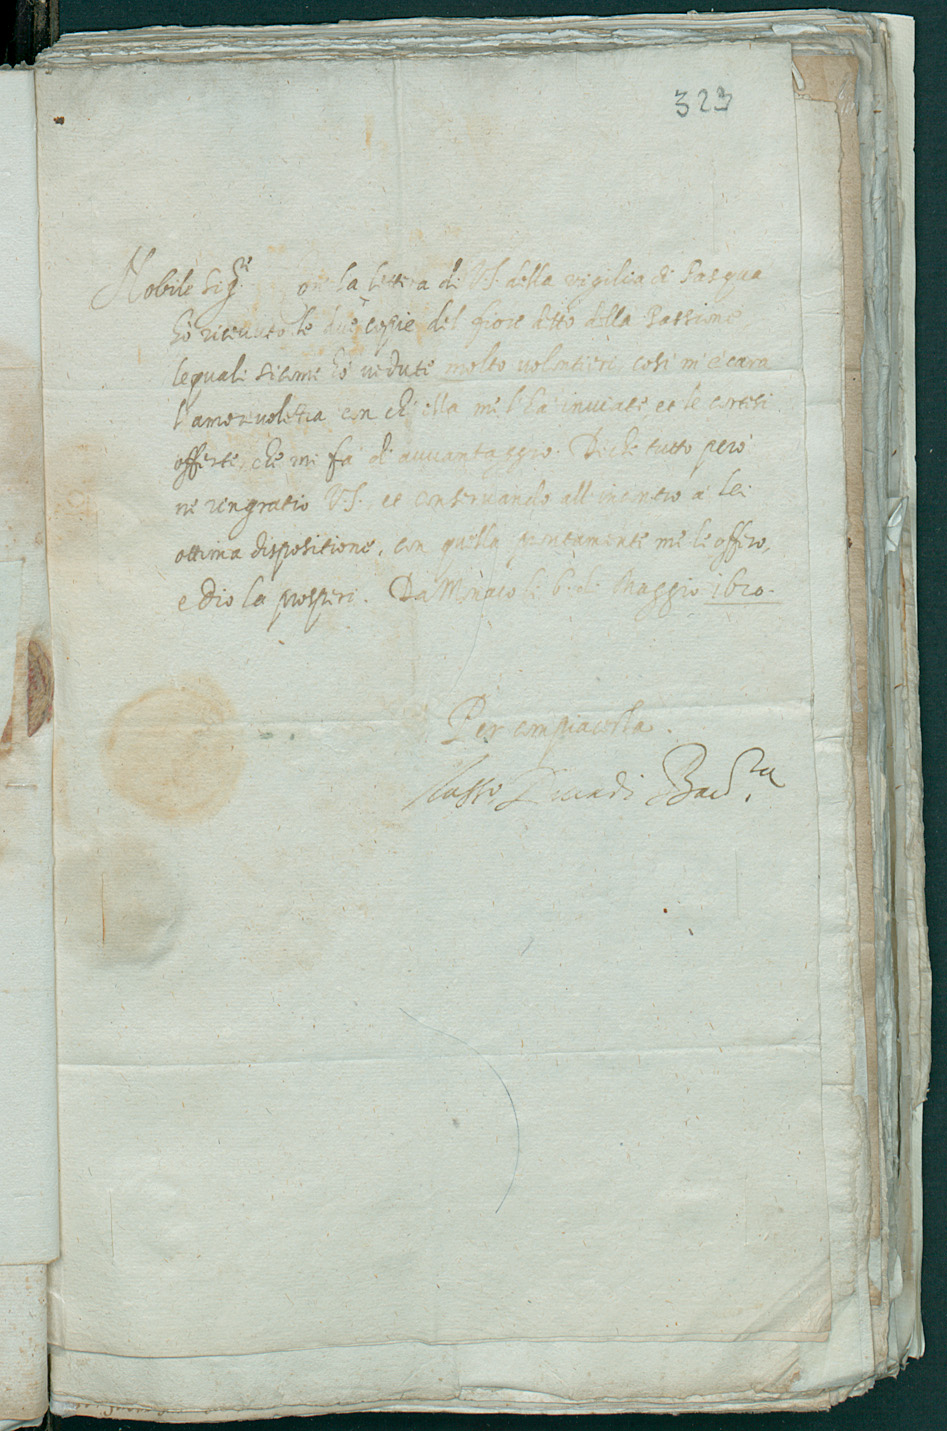 323
Nobile Sig.re con la lettera di VS. della vigilia di Pasqua
hò ricevuto le due copie del fiore detto della Passione
lequali sicome hò vedute molto volontieri, cosi m'è cara
l'amorevolezza con ch'ella me l'hà inviate et le cortesi
offerte, che mi fà di avvantaggio. Di che tutto però
ne rengratio VS., et conservando all'incontro à lei
ottima dispositione, con quella prontamente me le offero,
e Dio la prosperi. Da Monaco li 6. di Maggio 1610.
Per compiacerla.